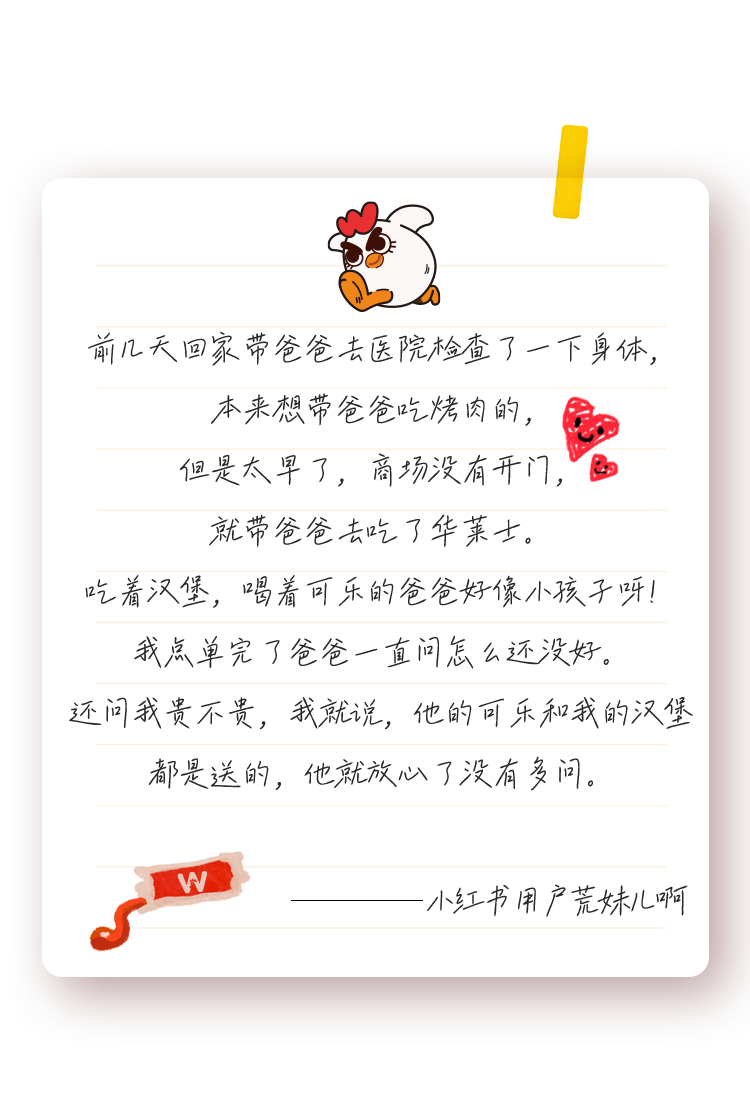 前几天回家带爸爸去医院检查了一下身体，
本来想带爸爸吃烤肉的，
但是太早了，商场没有开门，
就带爸爸去吃了华莱士。
吃着汉堡，喝着可乐的爸爸好像小孩子呀！
我点单完了爸爸一直问怎么还没好。
还问我贵不贵，我就说，他的可乐和我的汉堡
都是送的，他就放心了没有多问。
W
————小红书用户荒妹儿啊